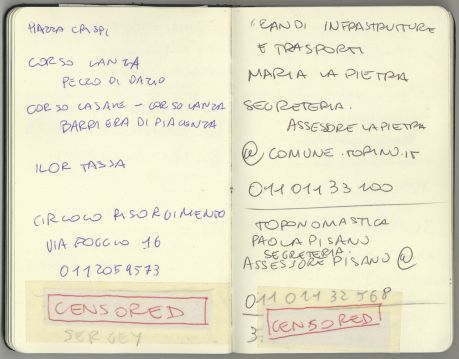 PIAZZA CRISPI
CORSO LANZA
PEZZO DI DAZIO
CORSO CASALE - CORSO LANZA
BARRIERA DI PIACENZA
ILOR TASSA
CIRCOLO RISORGIMENTO
VIA POGGIO 16
0112059573
CENSORED
SERGEY
CANDI INFRASTRUTTURE
E TRASPORTI
MARIA LA PIETRA
SEGRETERIA.
ASSESSORE LAPIETRA
@ COMUNE.TORINO.IT
011 011 33 100
TOPONOMASTICA
PAOLA PISANO
SEGRETERIA.
ASSESSORE PISANO @
011 011 32 568
3
CENSORED